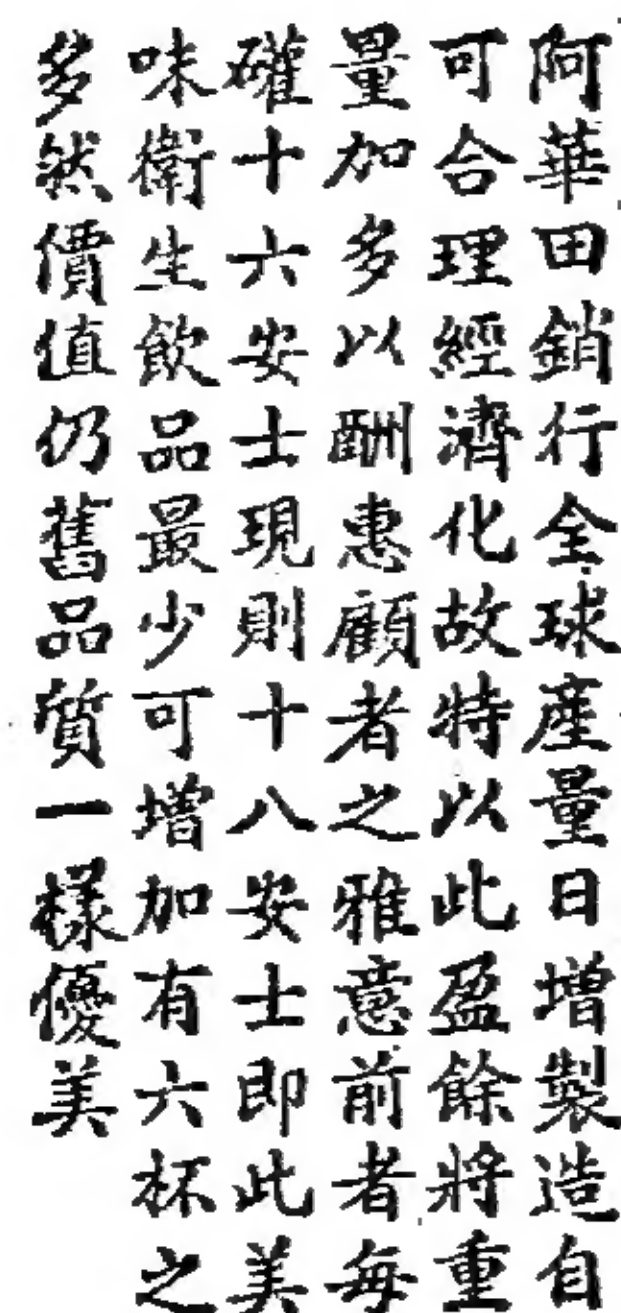 阿華田銷行全球產量日增製造自
可合理經濟化故特以此盈餘將重
量加多以酬惠顧者之雅意前者每
礶十六安士現則十八安士即此美
味衛生飲品最少可增加有六杯之
多然價值仍舊品質一樣優美